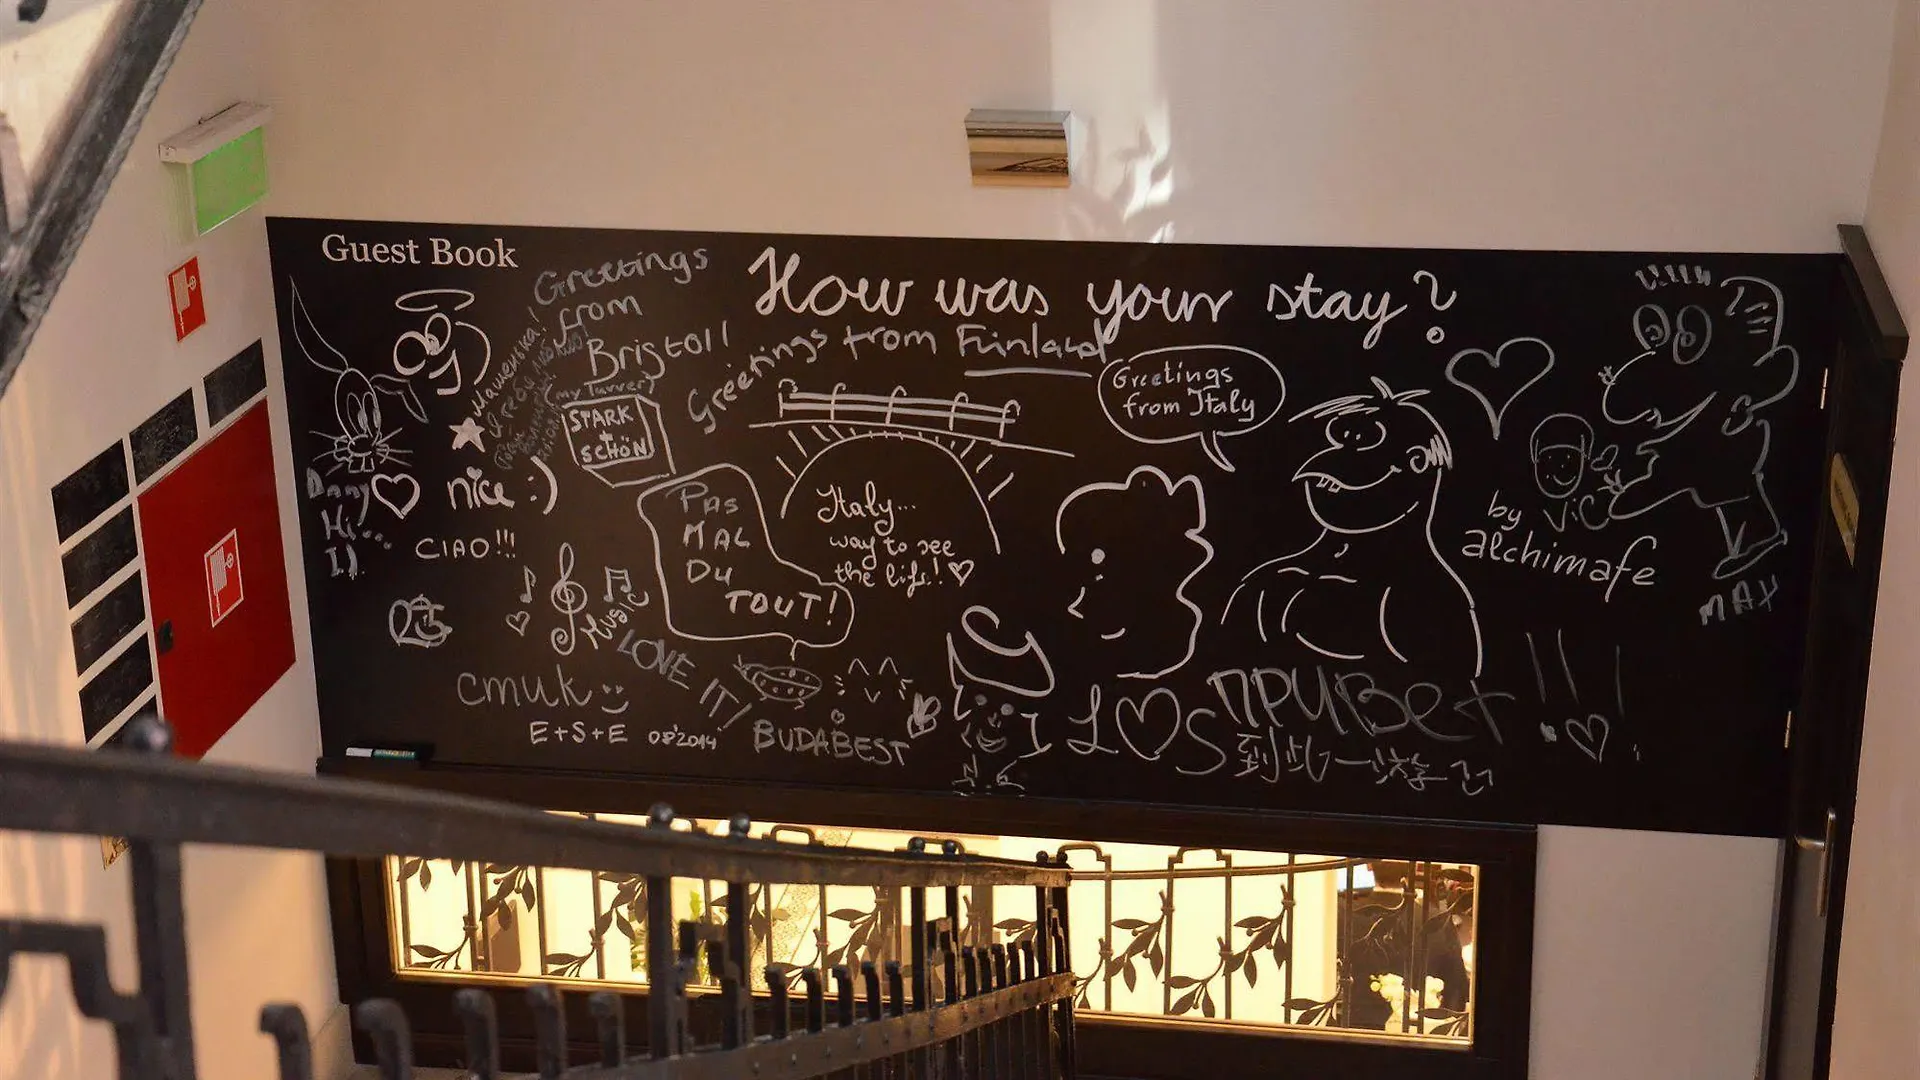 Guest Book
How was your stay?
Greetings
from
Bristol!
Greetings from Finland
Greetings
from Italy
Машенька!
Я тебя люблю
STARK
+
SCHÖN
Danny
Hi...
nice :)
CIAO!!!
PAS
MAL
DU
TOUT!
Italy...
way to see
the life!
by ViC
alchimafe
MAX
MUSIC
LOVE IT!
cmuk
E+S+E 08'2014
BUDABEST
L♡S
ПРИВет
到此一游